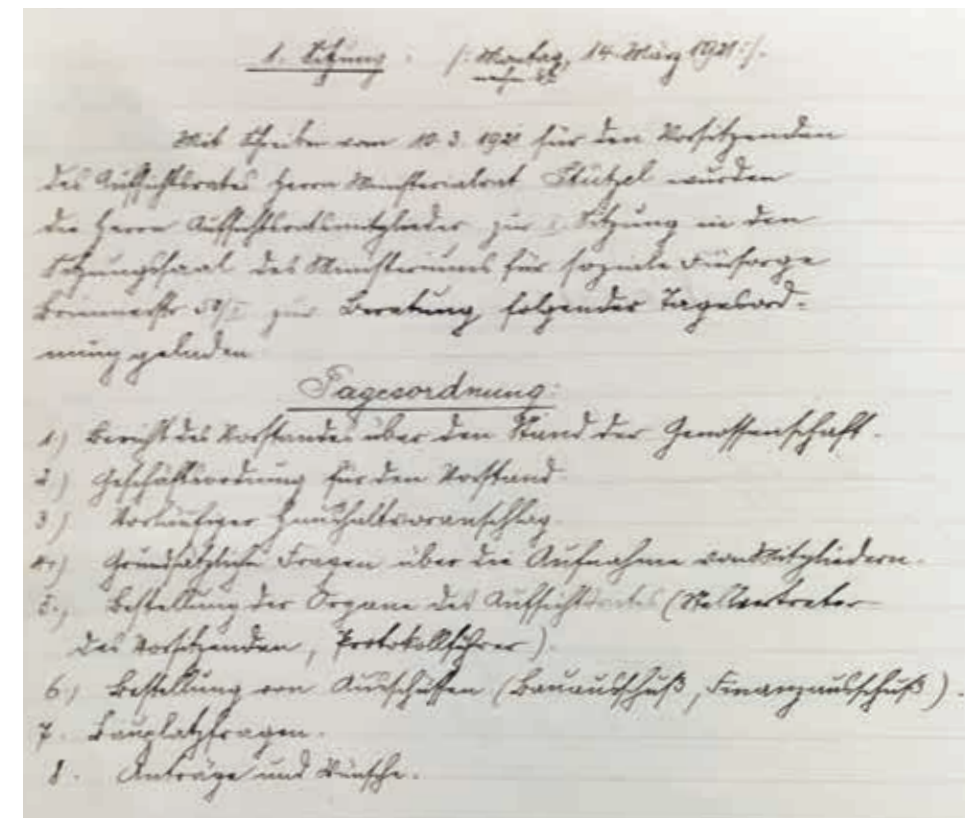 1. Sitzung : /: Montag, 14. März 1921 :/.
Mit Schreiben vom 10.3.1921 für den Vorsitzenden
des Aufsichtsrates Herrn Ministerialrat Stützel wurden
die Herrn Aufsichtsratsmitglieder zur 1. Sitzung in den
Sitzungssaal des Ministeriums für soziale Fürsorge
zur Beratung folgender Tagesord-
nung geladen
Tagesordnung:
1.) Bericht des Vorstandes über den Stand der Genossenschaft.
2.) Geschäftsordnung für den Vorstand.
3.) Vorläufiger Haushaltsvoranschlag.
4.) Grundsätzliche Fragen über die Aufnahme von Mitgliedern.
5.) Bestellung der Organe des Aufsichtsrates (Stellvertreter
des Vorsitzenden, Protokollführer).
6.) Bestellung von Ausschüssen (Bauausschuß, Finanzausschuß).
7. Bauplatzfragen.
8. Anträge und Wünsche.